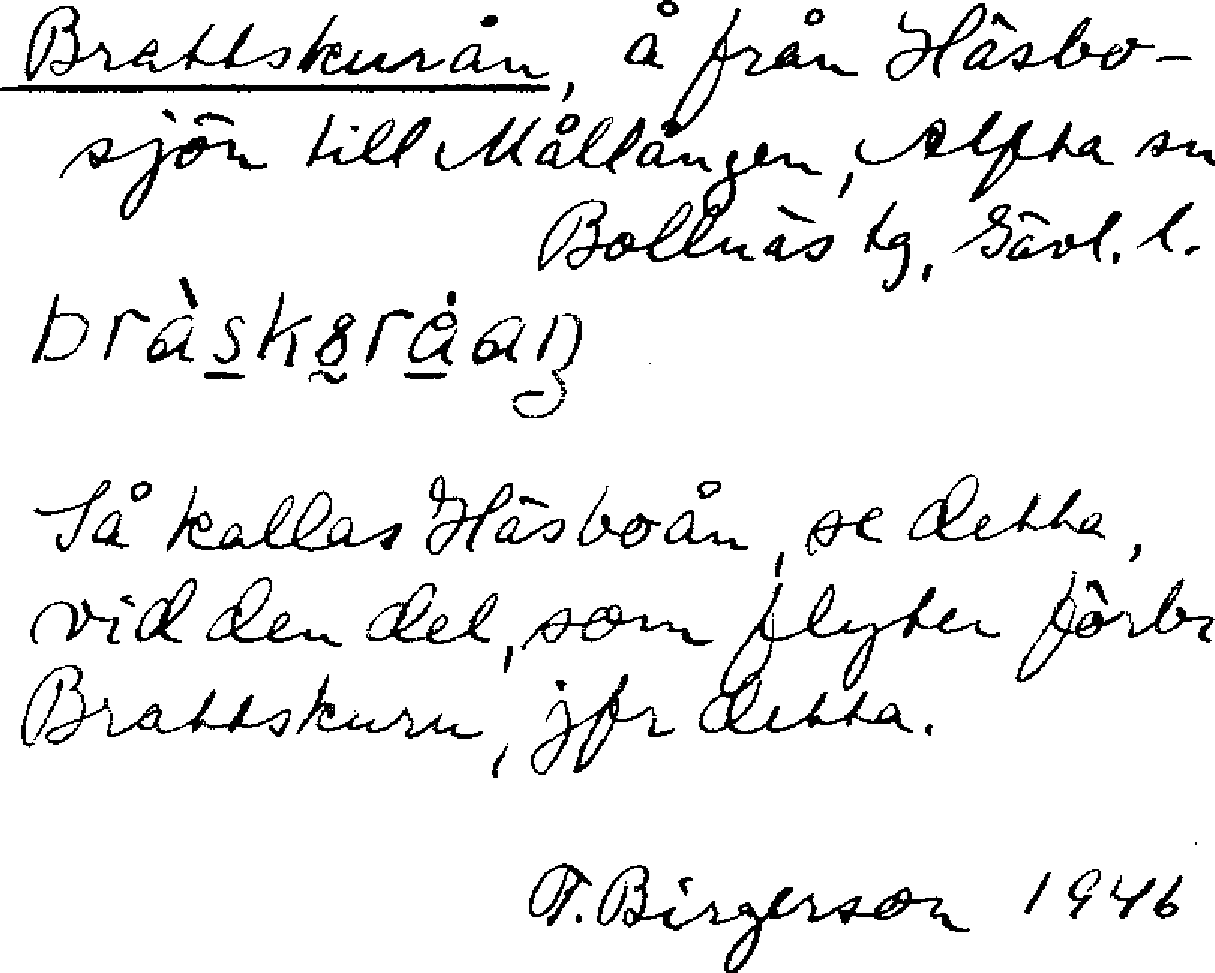 Brattskurån, å från Häsbo-
sjön till Mållången, Alfta sn
Bollnäs tg, Gävl. l.
bràskȣråan
Så kallas Häsboån, se detta,
vid den del, som flyter förbi
Brattskurn, jfr detta.
T. Birgerson 1946